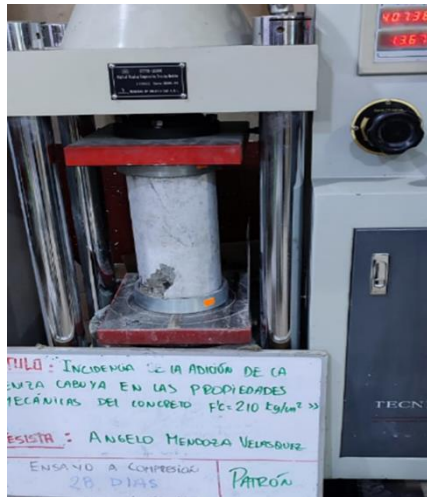 40738
1367
TULO : INCIDENCIA DE LA ADICIÓN DE LA
ENIZA CABUYA EN LAS PROPIEDADES
MECÁNICAS DEL CONCRETO F'c=210 kg/cm² >>
TESISTA : ANGELO MENDOZA VELASQUEZ
ENSAYO A COMPRESIÓN
28 DIAS
PATRÓN
TECN